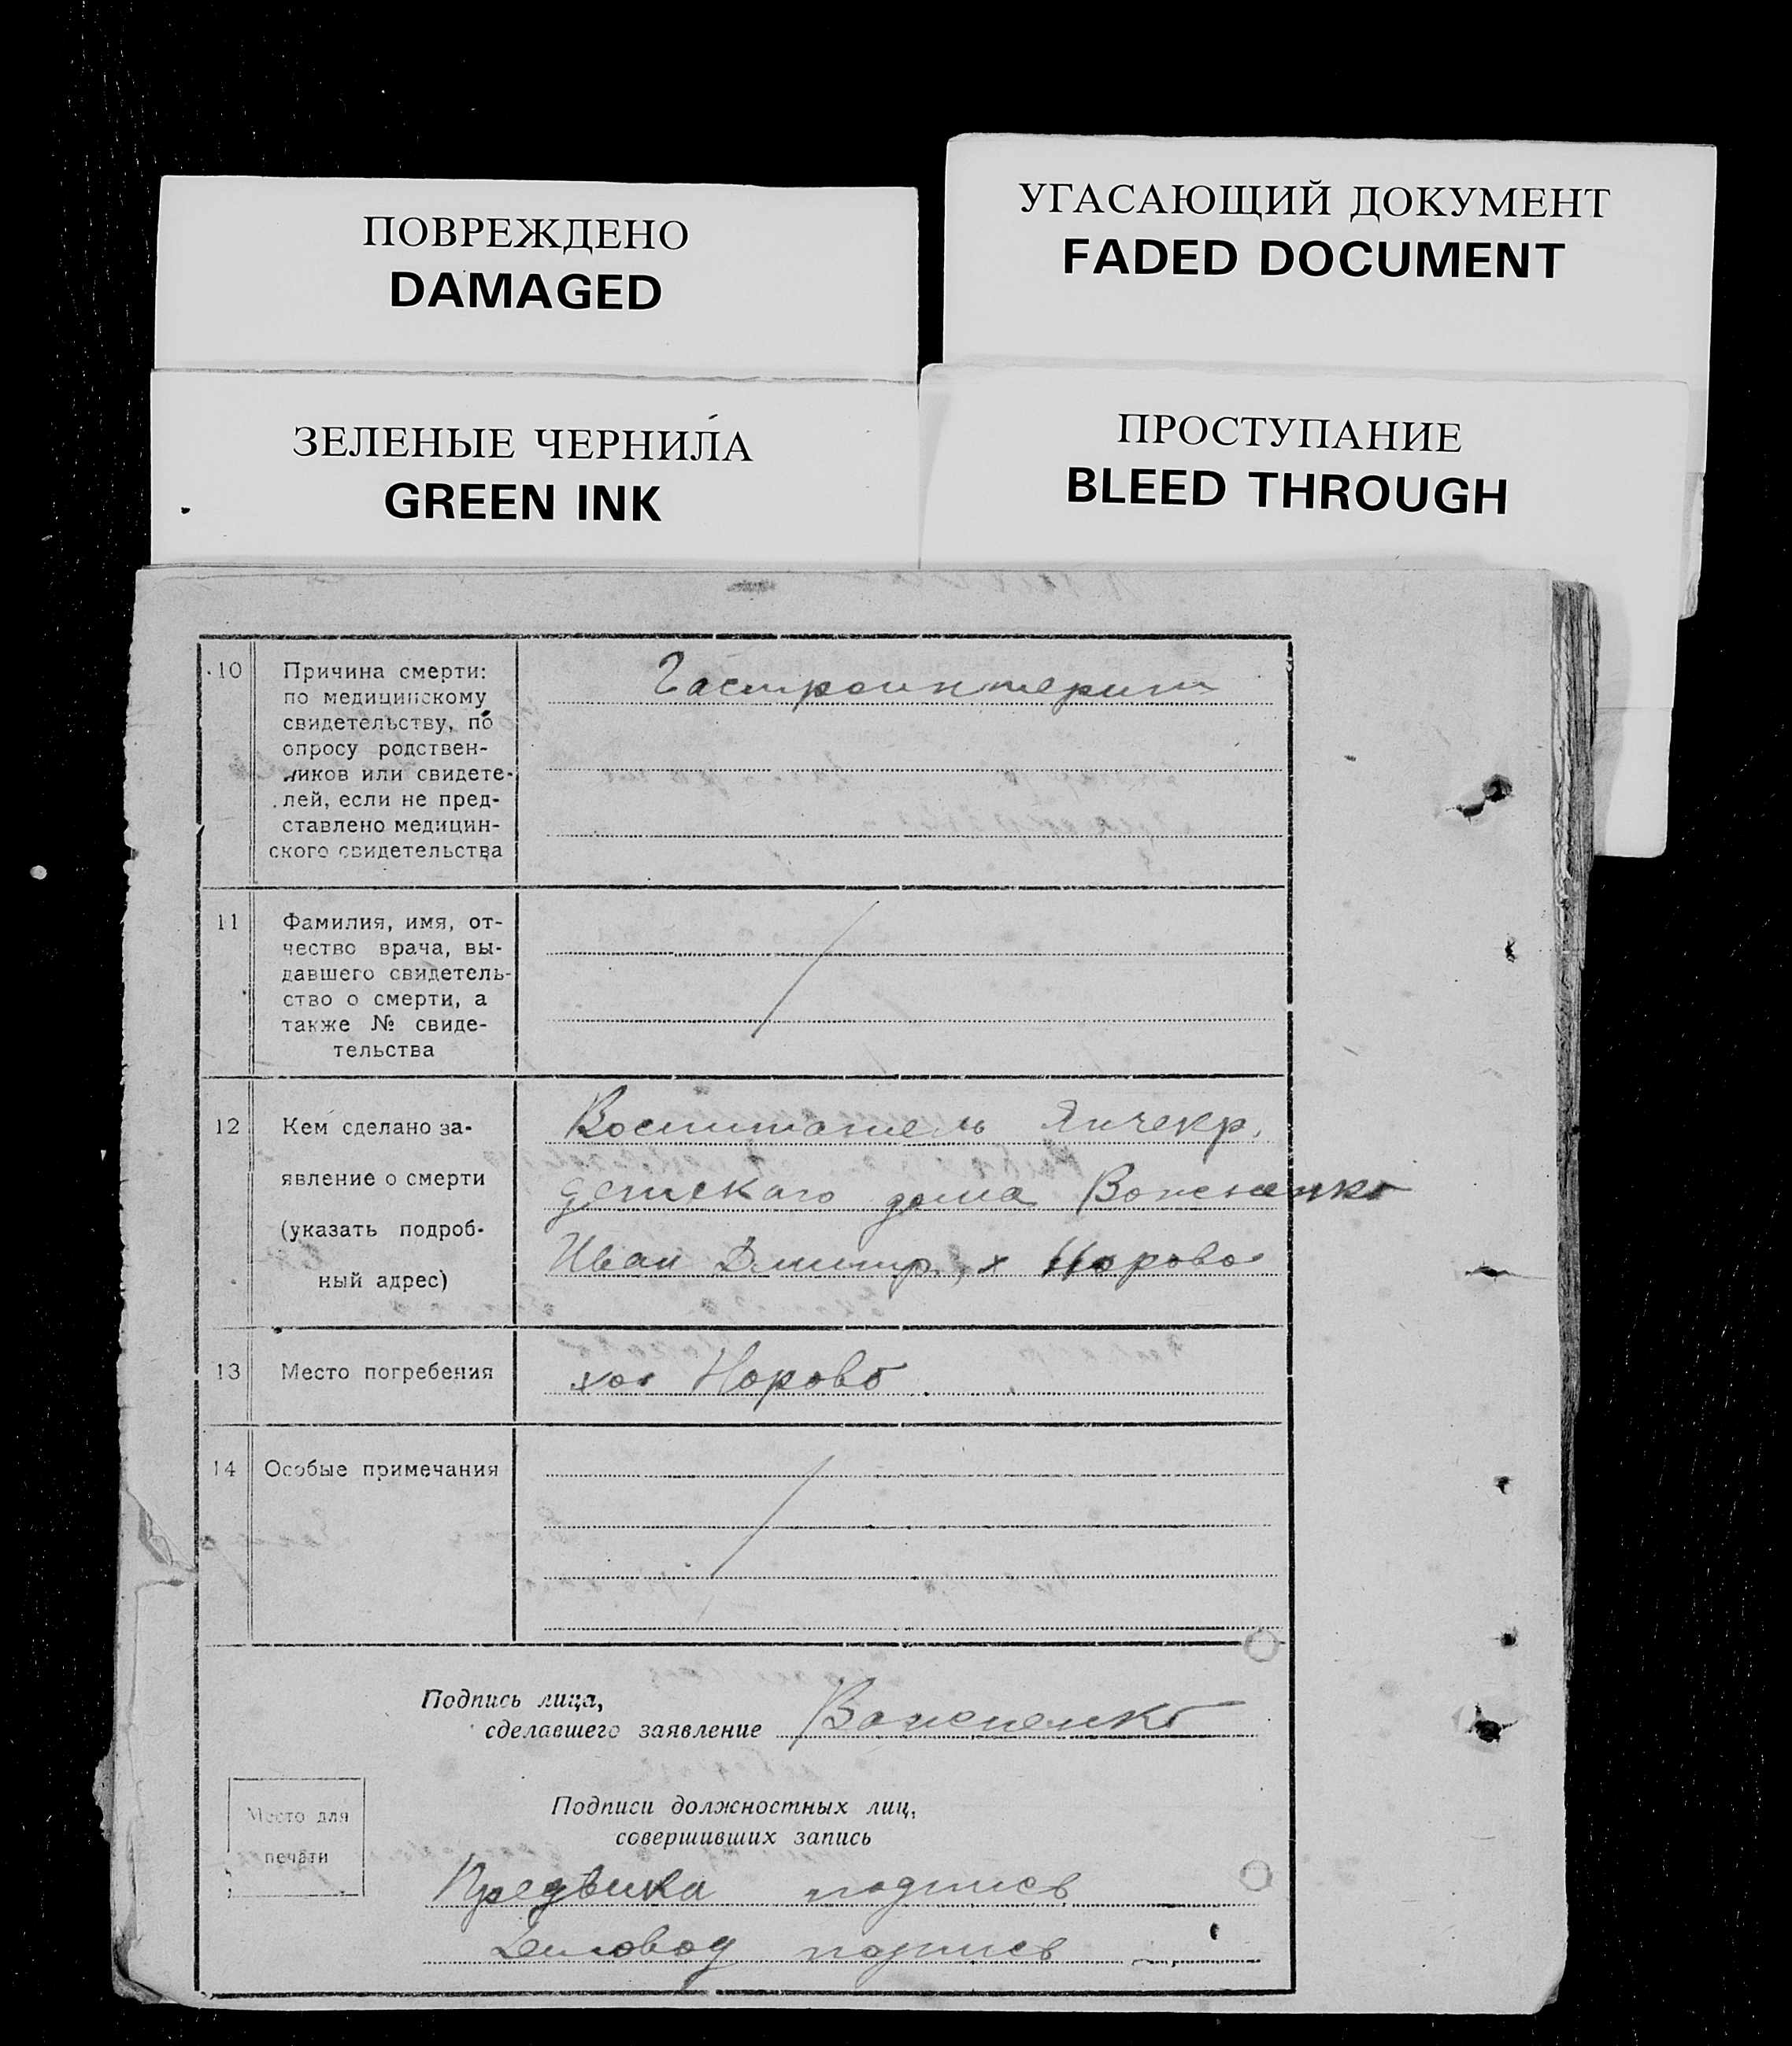 ПОВРЕЖДЕНО
DAMAGED
УГАСАЮЩИЙ ДОКУМЕНТ
FADED DOCUMENT
ЗЕЛЕНЫЕ ЧЕРНИЛА
GREEN INK
ПРОСТУПАНИЕ
BLEED THROUGH
10 Причина смерти:
по медицинскому
свидетельству, по
опросу родствен-
ников или свидете-
лей, если не пред-
ставлено медицин-
ского свидетельства
Гастроинтерит
11 Фамилия, имя, от-
чество врача, вы-
давшего свидетель-
ство о смерти, а
также № свиде-
тельства
12 Кем сделано за-
явление о смерти
(указать подроб-
ный адрес)
Воспитатель Янчекр.
детскаго дома
Иван Дмитр., х Норово
13 Место погребения
хот Норово
14 Особые примечания
Подпись лица,
сделавшего заявление
Подписи должностных лиц,
совершивших запись
Место для
печати
подпись
Деловод подпись